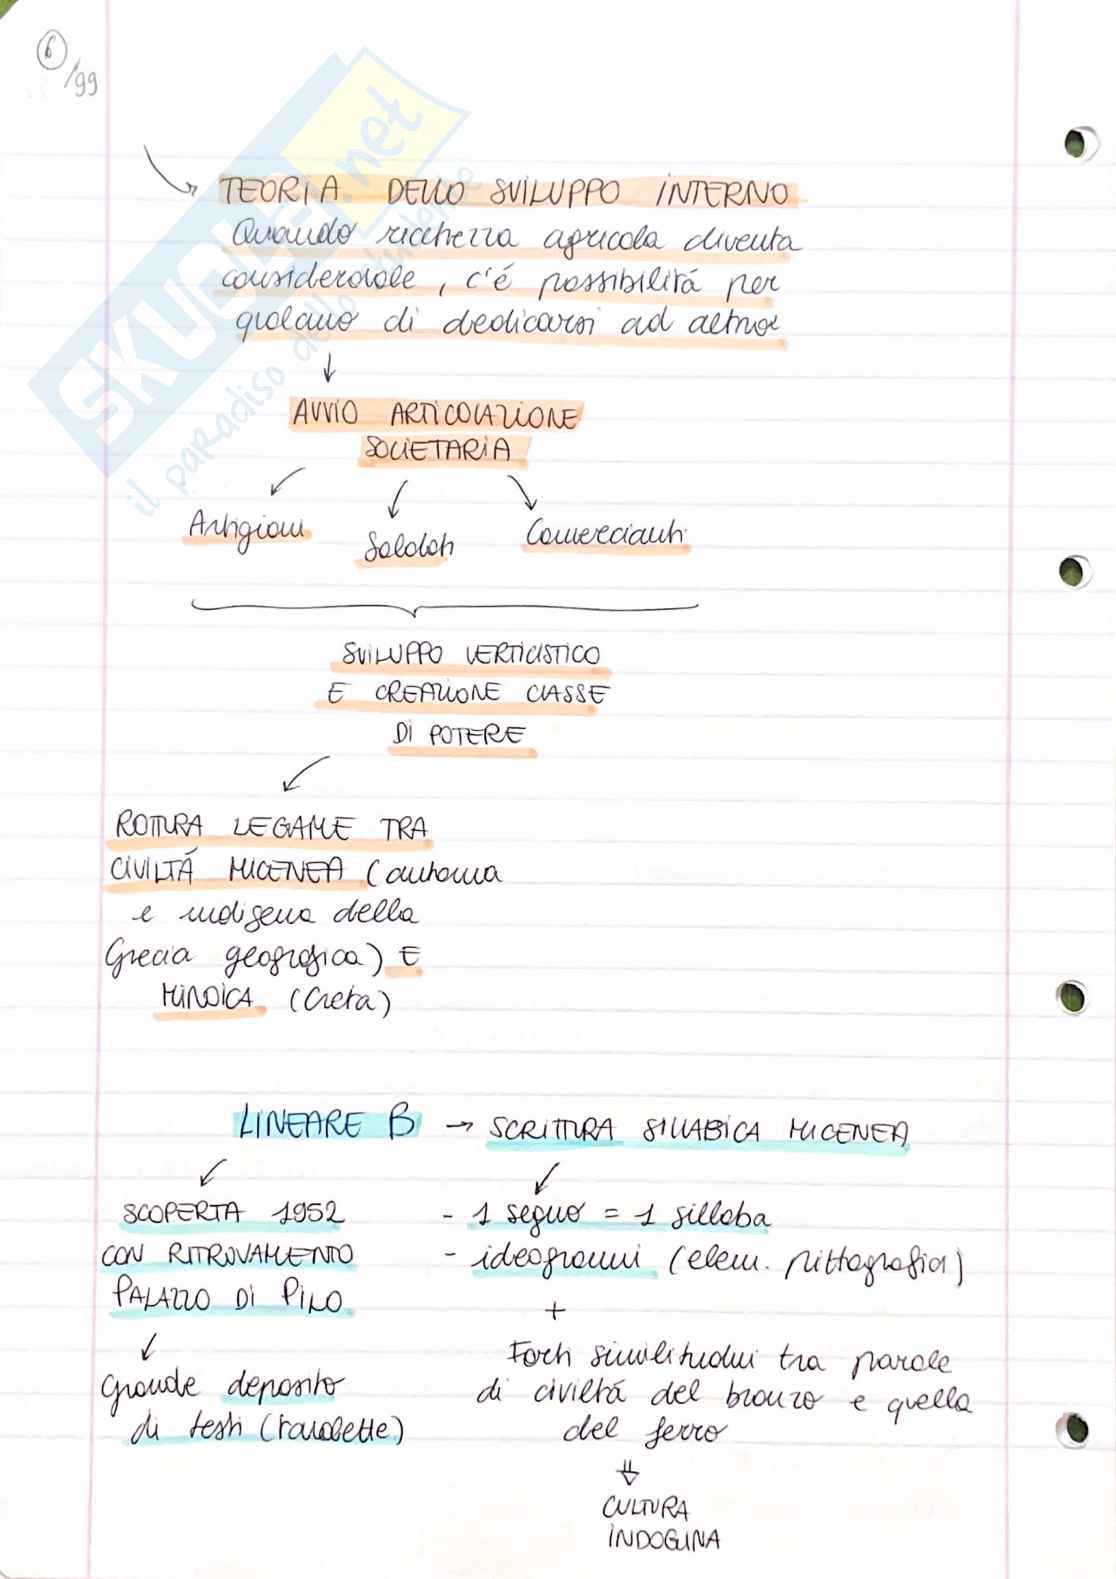 6/99
SKUOLA.net
il paradiso dello studente
TEORIA DELLO SVILUPPO INTERNO
Quando ricchezza agricola diventa
considerevole, c'é possibilitá per
qualcuno di dedicarsi ad altro
↓
AVVIO ARTICOLAZIONE
SOCIETARIA
Artigiani Soldati Commercianti
SVILUPPO VERTICISTICO
E CREAZIONE CLASSE
DI POTERE
ROTTURA LEGAME TRA
CIVILTÁ MICENEA (autonoma
e indigena della
Grecia geografica) E
MINOICA (Creta)
LINEARE B → SCRITTURA SILLABICA MICENEA
SCOPERTA 1952
CON RITROVAMENTO
PALAZZO DI PILO
Grande deposito
di testi (tavolette)
- 1 segno = 1 sillaba
- ideogrammi (elem. pittografici)
+
Forti similitudini tra parole
di civiltá del bronzo e quella
del ferro
⇓
CULTURA
INDOGINA